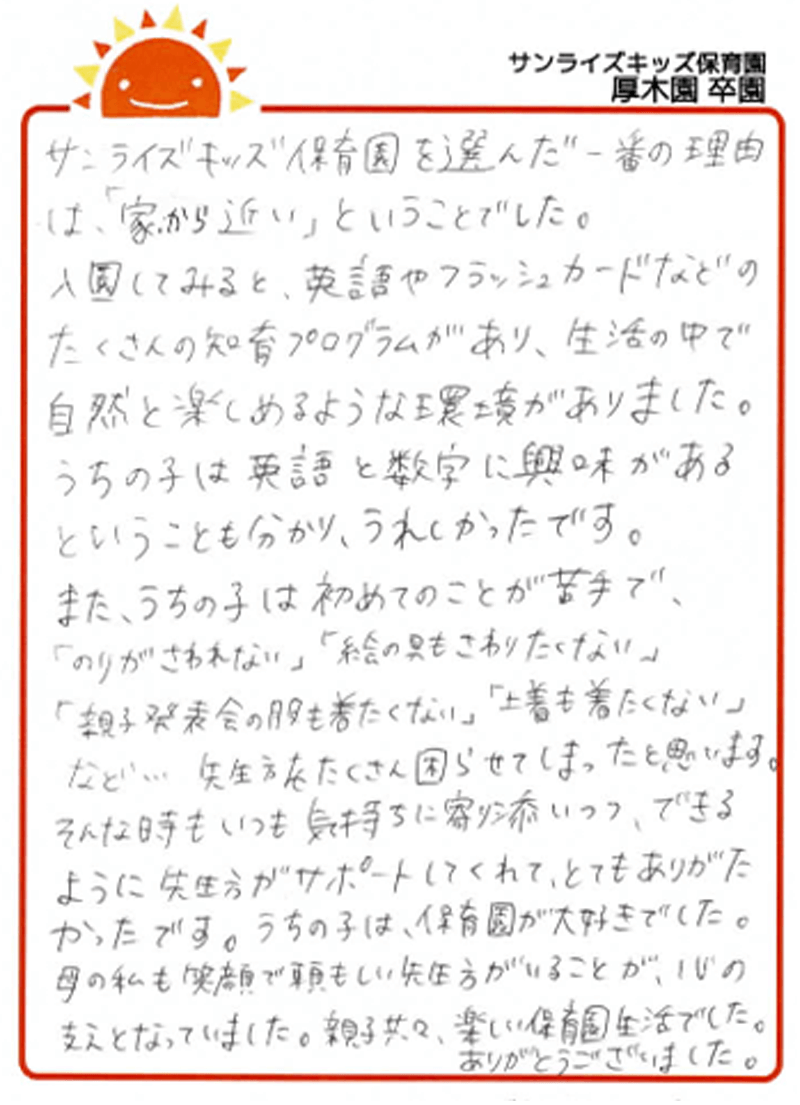 サンライズキッズ保育園
厚木園 卒園
サンライズキッズ保育園を選んだ一番の理由
は、「家から近い」ということでした。
入園してみると、英語やフラッシュカードなどの
たくさんの知育プログラムがあり、生活の中で
自然と楽しめるような環境がありました。
うちの子は英語と数字に興味がある
ということも分かり、うれしかったです。
また、うちの子は初めてのことが苦手で、
「のりがさわれない」「絵の具もさわりたくない」
「親子発表会の服も着たくない」「上着も着たくない」
など… 先生方をたくさん困らせてしまったと思います。
そんな時もいつも気持ちに寄り添いつつ、できる
ように先生方がサポートしてくれて、とてもありがた
かったです。うちの子は、保育園が大好きでした。
母の私も笑顔で頼もしい先生方がいることが、心の
支えとなっていました。親子共々、楽しい保育園生活でした。
ありがとうございました。